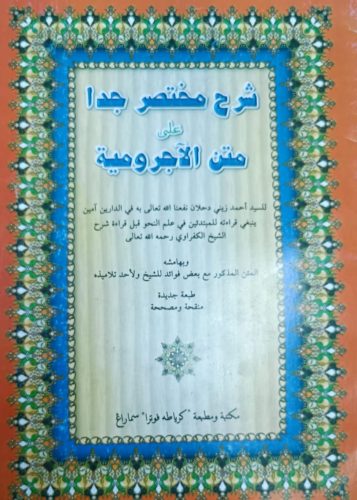 شرح مختصر جدا
على
متن الآجرومية
للسيد أحمد زيني دحلان نفعنا الله تعالى به في الدارين آمين
ينبغي قراءته للمبتدئين في علم النحو قبل قراءة شرح
الشيخ الكفراوي رحمه الله تعالى
وبهامشه
المتن المذكور مع بعض فوائد للشيخ ولأحد تلاميذه
طبعة جديدة
منقحة ومصححة
مكتبة ومطبعة "كرياطه فوترا" سماراغ